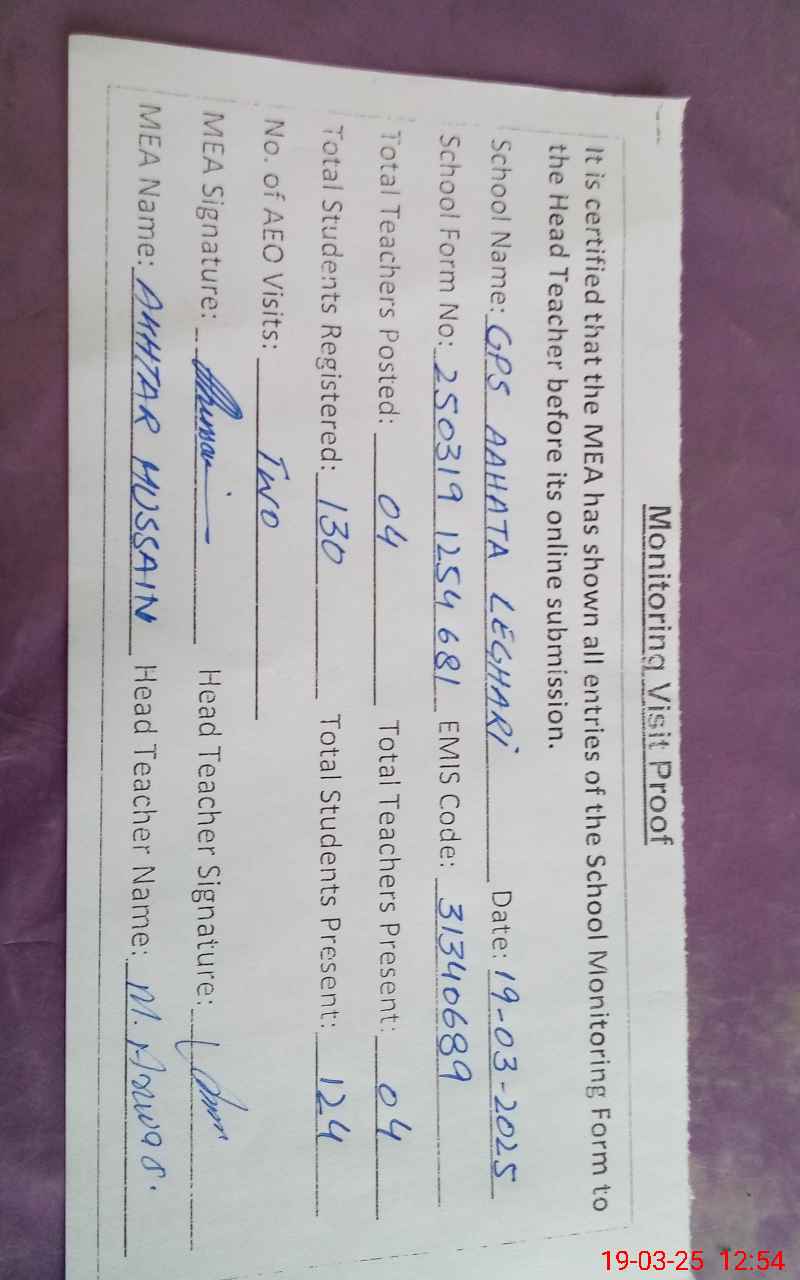 Monitoring Visit Proof
It is certified that the MEA has shown all entries of the School Monitoring Form to
the Head Teacher before its online submission.
School Name: GPS AAHATA LEGHARI Date: 19-03-2025
School Form No: 250319 1254 681 EMIS Code: 31340689
Total Teachers Posted: 04 Total Teachers Present: 04
Total Students Registered: 130 Total Students Present: 124
No. of AEO Visits: Two
MEA Signature: Head Teacher Signature:
MEA Name: AKHTAR HUSSAIN Head Teacher Name: M.
19-03-25 12:54